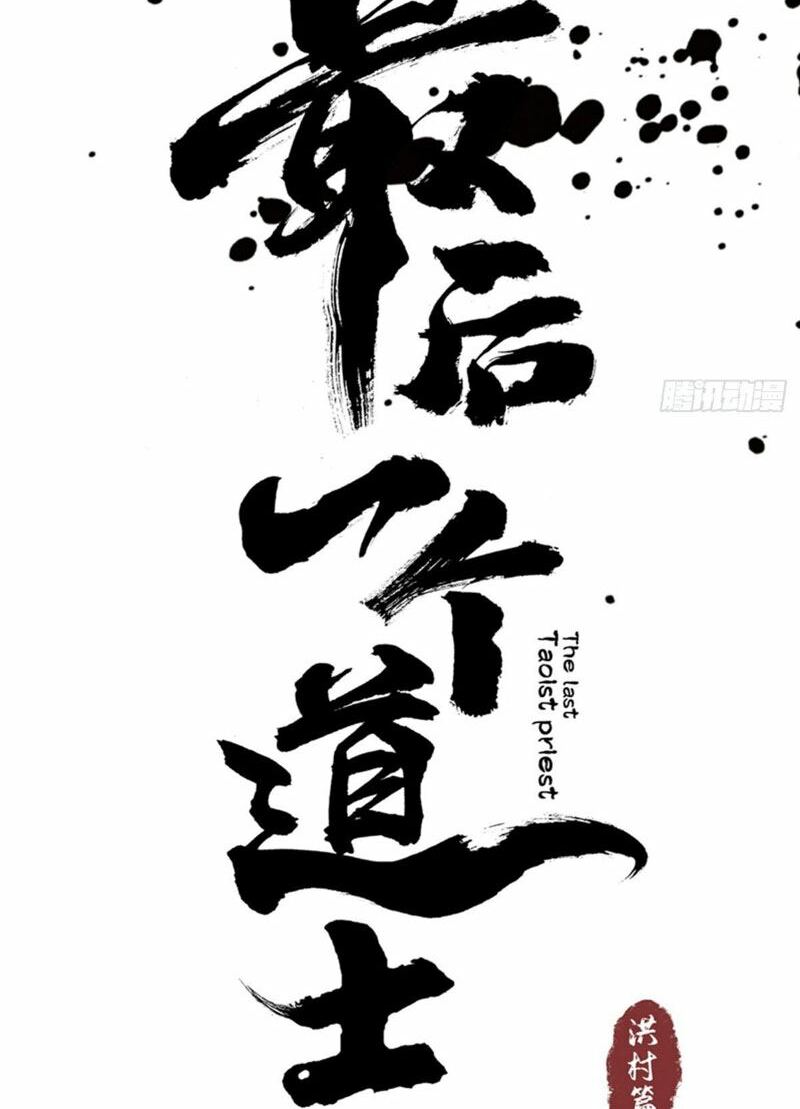 最后
一个
道士
The last
Taoist priest
腾讯动漫
洪村篇